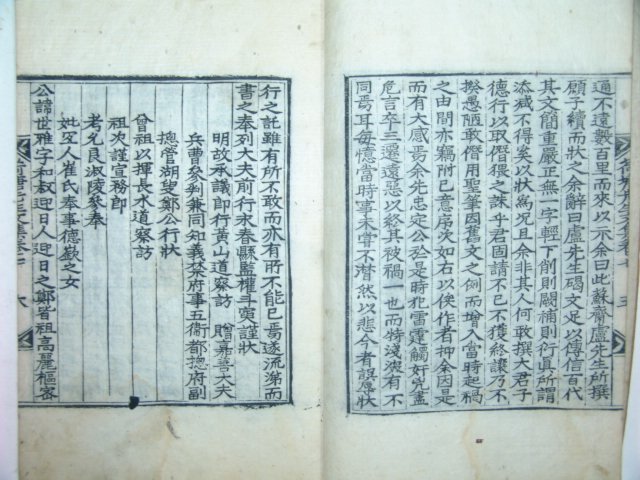 通不遠數百里而來以示余曰此蘇齋盧先生所撰
顧子續而狀之余辭曰盧先生碣文足以傳信百代
其文簡重嚴正無一字輕下削則闕補則衍眞所謂
添減不得矣以狀爲況且余非其人何敢撰大君子
德行以取僭猥之誅乎君固請不已不獲終讓乃不
揆愚陋敢僭用聖筆因舊文之例而增入當時起禍
之由間亦竊附已意序次如右以俟作者抑余因是
而有大感焉余先忠定公於是時犯雷霆觸奸兇盡
危言卒三遷遠惡以終其被禍一也而特淺深有不
同焉耳每憶當時事未嘗不潛然以悲今者誤辱狀
行之託雖有所不敢而亦有所不能已焉遂流涕而
書之奉列大夫前行永春縣監權斗寅謹狀
明故承議郎行黃山道察訪 贈嘉善大夫
兵曹參判兼同知義禁府事五衞都摠府副
摠管湖叟鄭公行狀
曾祖以揮長水道察訪
祖次謹宣務郎
考允良淑陵參奉
妣孺人崔氏奉事德嶔之女
公諱世雅字和叔迎日人迎日之鄭皆祖高麗樞密